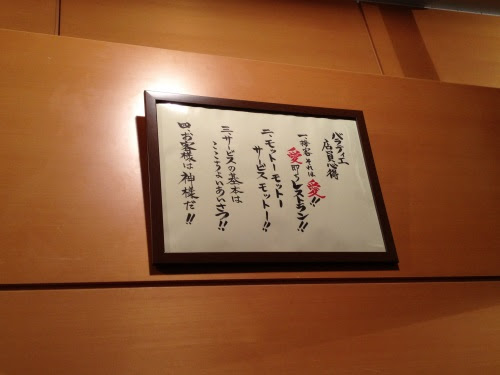 バラティエ
店員心得
一、接客それは愛!!
愛即ちレストラン!!
二、モットーモットー
サービスモットー!!
三、サービスの基本は
ここちよいあいさつ!!
四、お客様は神様だ!!